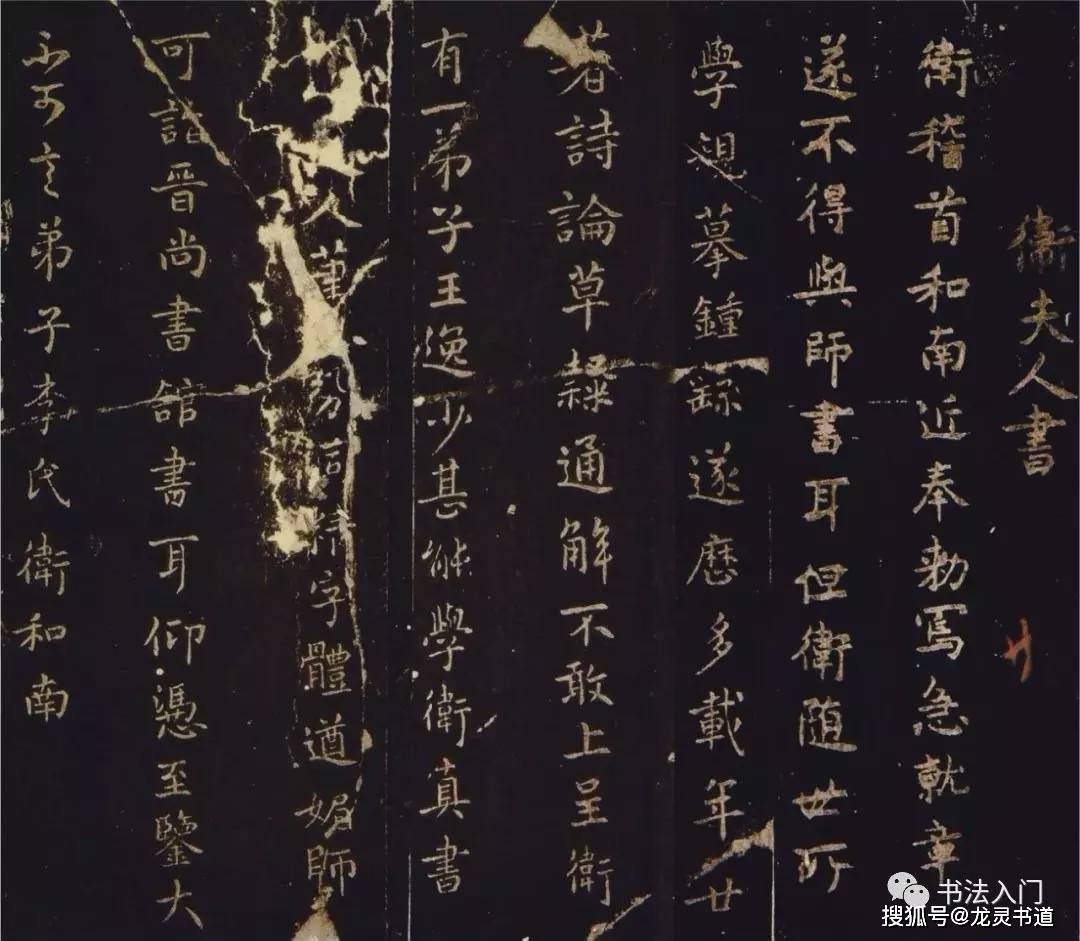 衛夫人書
衛稽首和南近奉勅寫急就章
遂不得與師書耳但衛随世所
學規摹鍾繇遂歷多載年廿
著詩論草隸通解不敢上呈衛
有一弟子王逸少甚能學衛真書
人筆勢洞精字體遒媚師
可詣晉尚書館書耳仰憑至鑒大
不可言弟子李氏衛和南
书法入门
搜狐号@龙灵书道